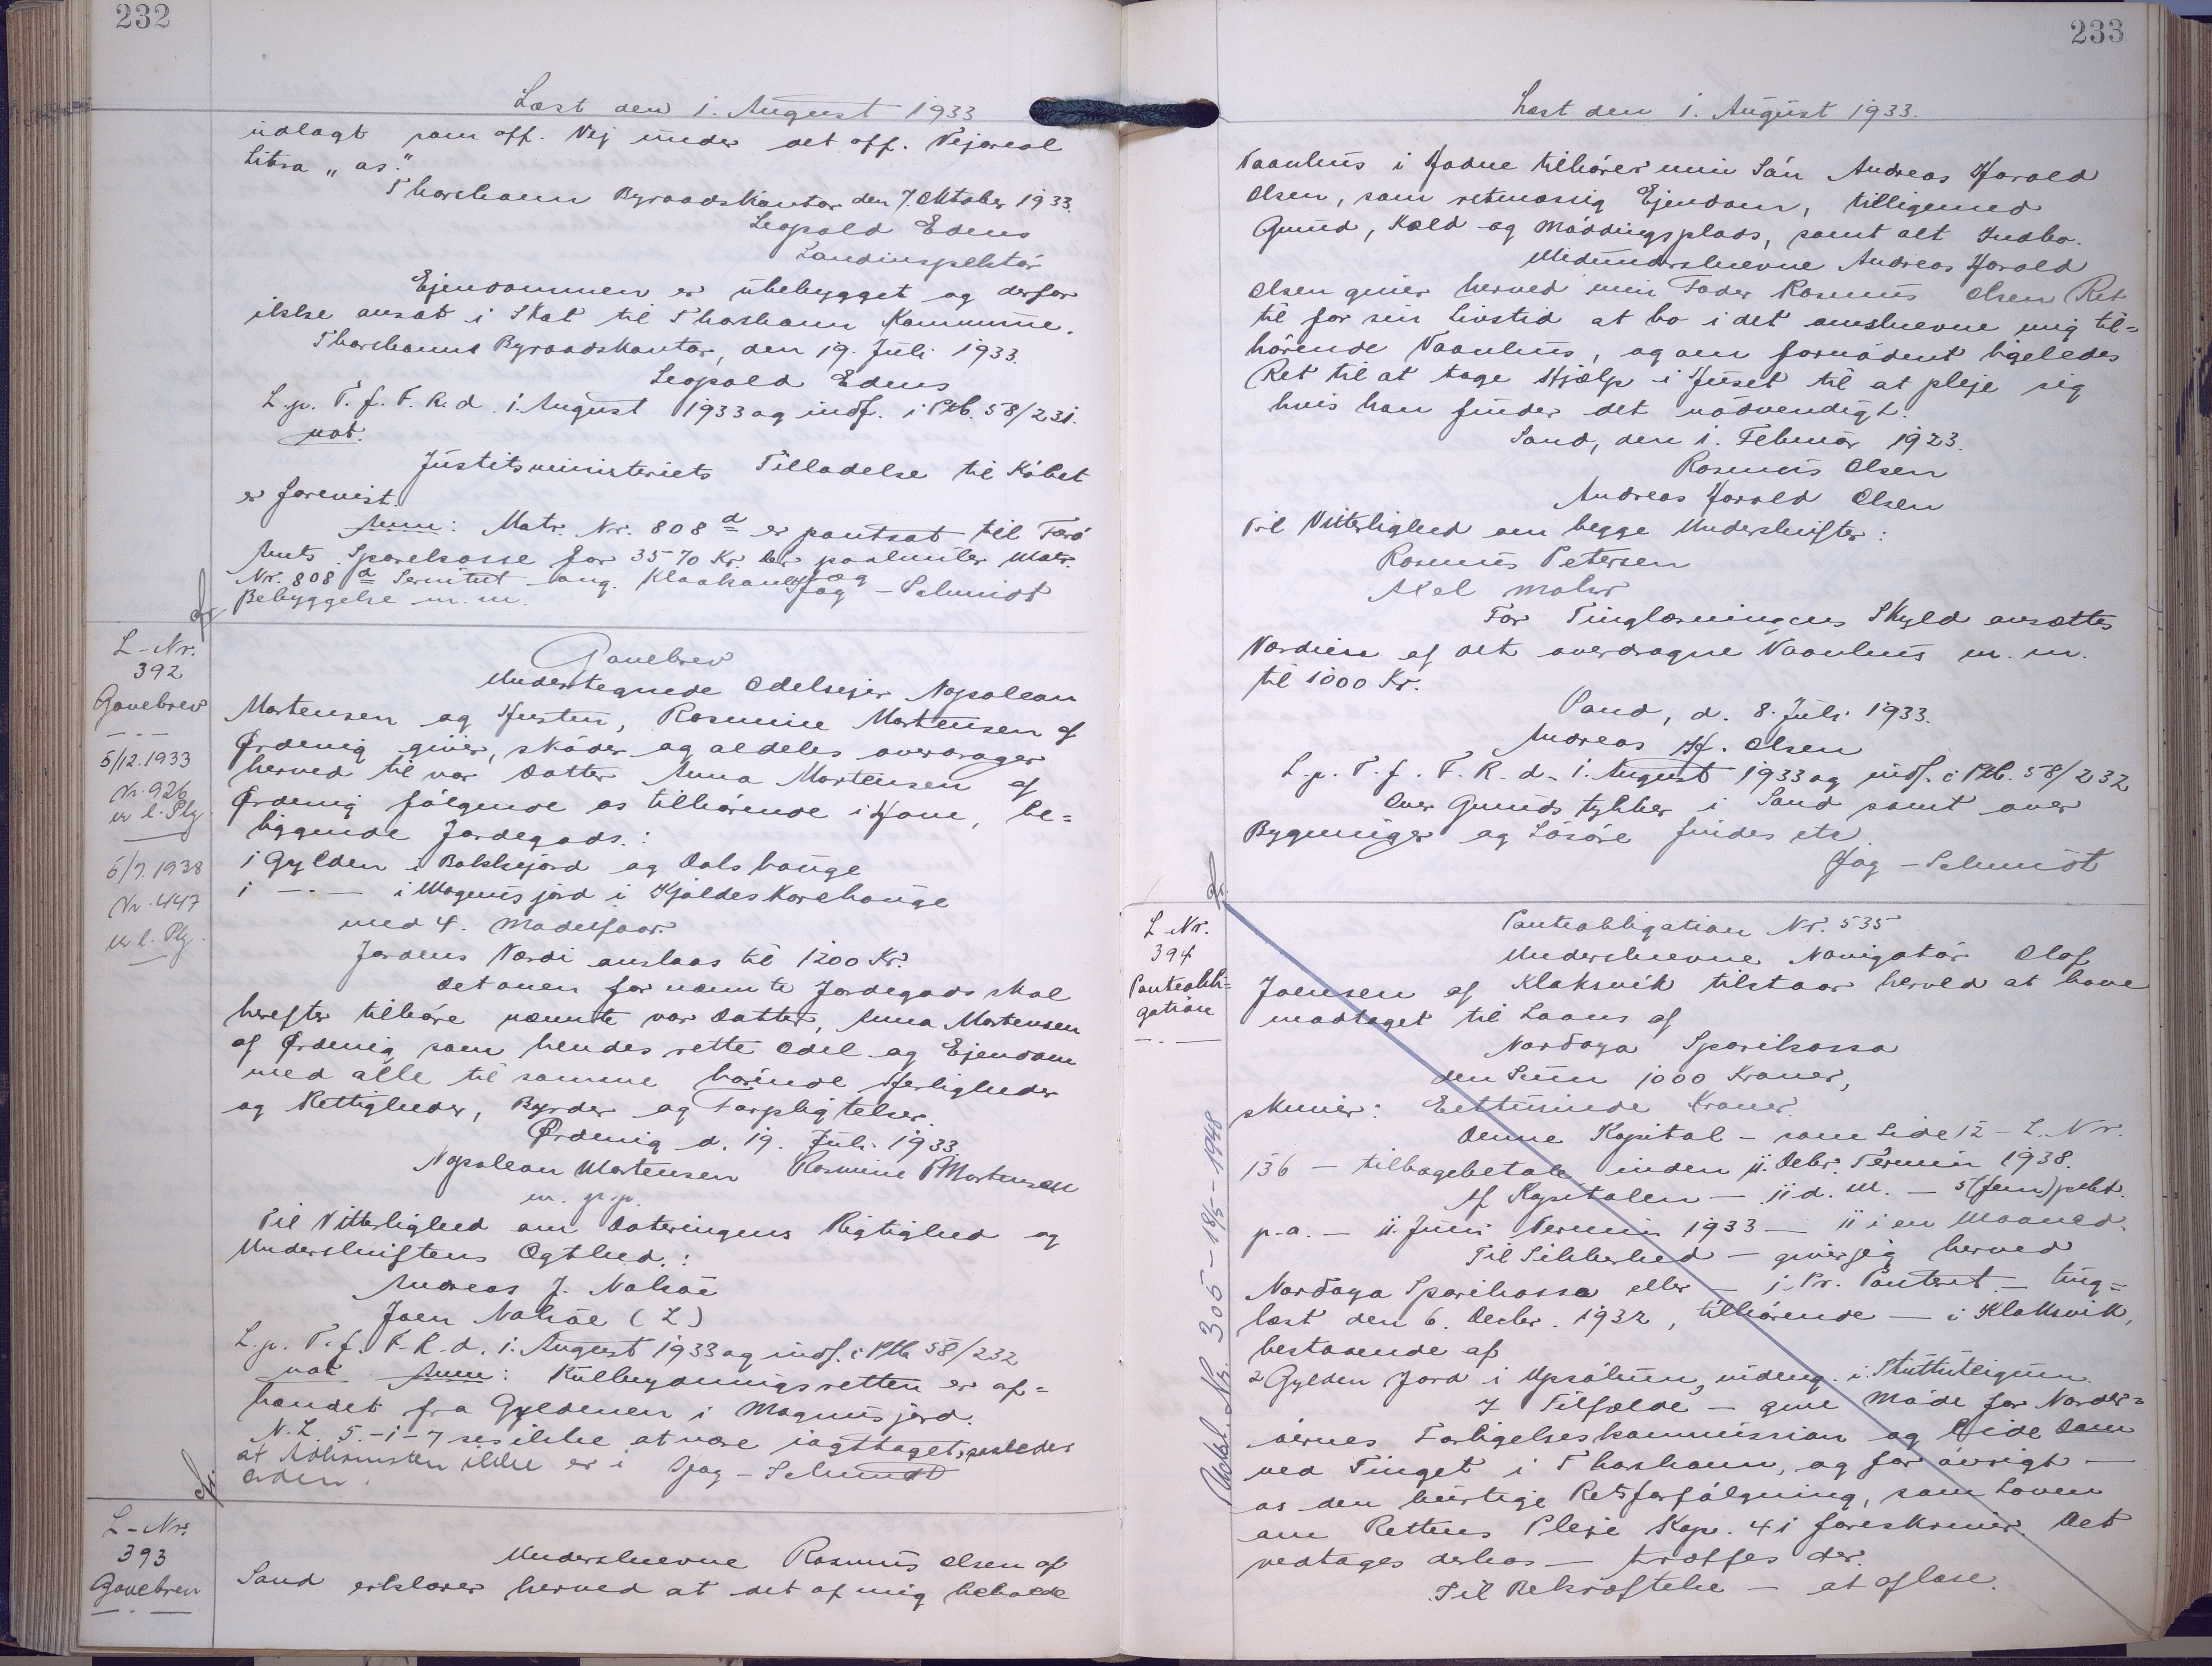 232
Læst den 1. August 1933
udlagt som off. Vej under det off. Vejareal
Litra „as".
Thorshavn Byraadskontor den 7. Oktober 1933.
Leopold Edens
Landinspektör
Ejendommen er übebygget og derfor
ikke ansat i Skat til Thorshavn Kommune.
Thorshavns Byraadskontor, den 19. Juli 1933.
Leopold Edens
L.p. T. f. F. R. d. 1. August 1933 og indf. i Ptb. 58/231.
not.
Justitsministeriets Tilladelse til Köbet
er forevist.
Anm: Matr. Nr. 808 a er pantsat til Færö
Amts Sparekasse for 3570 Kr. paahviler Matr.
Nr. 808 a Servitut ang. Kloakanlæg
Bebyggelse m. m. Jag - Schmidt
L-Nr.
392
Gavebrev
5/12.1933
Nr. 926
er l. Plg.
6/7.1938
Nr. 447
er l. Plg.
Gavebrev
Undertegnede Odelsejer Napolean
Mortensen og Hustru, Rasmine Mortensen af
Ørdevig giver, sköder og aldeles overdrager
herved til vor Datter Anna Mortensen af
Ørdevig fölgende os tilhörende i Hove, be=
liggende Jordegods.:
i Gylden i Bakkejörd og Dalshauge
i -.- i Magnusjörd i Kjoldeskorshauge
med 4. Moderfaar.
Jordens Værdi anslaas til 1200 Kr.
Det oven for nævnte Jordegods skal
herefter tilhöre nævnte vor Datter, Anna Mortensen
af Ørdevig som hendes rette Odel og Ejendom
med alle til samme hörende Herligheder
og Rettigheder, Byrder og Forpligtelser.
Ørdevig d. 19. Juli 1933.
Napolean Mortensen Rasmine P Mortensen
m. p.p.
Til Vitterlighed om Dateringens Rigtighed og
Underskriftens Ægthed.:
Andreas J. Nolsöe
Joen Nolsöe (L)
L. p. T. f. F. R. d. 1. August 1933 og indf. i Ptb 58/232
not Anm: Kulbrydningsretten er af=
hændet fra Gyldenen i Magnusjörd.
N.L. 5.-1-7 ses ikke at være iagttaget, saaledes
at Adkomsten ikke er i Jag - Schmidt
Orden.
L-Nr.
393
Gavebrev
Underskrevne Rasmus Olsen af
Sand erklærer herved at det af mig beboede
233
Læst den 1. August 1933.
Vaanhus i Jadne tilhörer min Sön Andreas Harald
Olsen, som retmæssig Ejendom, tilligemed
Grund, Kæld og Möddingsplads, samt alt Indbo.
Medunderskrevne Andreas Harald
Olsen giver herved min Fader Rasmus Olsen Ret
til for sin Livstid at bo i det omskrevne mig til=
hörende Vaanhus, og om fornödent ligeledes
Ret til at tage Hjælp i Huset til at pleje sig
hvis han finder det nödvendigt.
Sand, den 1. Februar 1923.
Rasmus Olsen
Andreas Harald Olsen
Til Vitterlighed om begge Underskrifter:
Rasmus Petersen
Axel Mohr
For Tinglæsningens Skyld ansættes
Værdien af det overdragne Vaanhus m. m.
til 1000 Kr.
Sand, d. 8. Juli 1933.
Andreas H. Olsen
L. p. T. f. F. R. d. 1. August 1933 og indf. i Ptb. 58/232
Over Grundstykker i Sand samt over
Bygninger og Lösöre findes ete.
Jag - Schmidt
L. Nr.
394
Panteobli=
gation
Udsl. Nr. 305 - 18/5 - 1948
Panteobligation Nr. 535
Underskrevne Navigatör Olaf
Joensen af Klaksvik tilstaar herved at have
modtaget til Laans af
Nordoya Sparikassa
den Sum 1000 Kroner,
skriver: Eettusinde Kroner.
Denne Kapital - som Side 12 - L. Nr.
136 - tilbagebetale inden 11. Decbr. Termin 1938.
Af Kapitalen - 11 d. M. - 5 (fem) pCt.
p.a. - 11. Juni Termin 1933 - 11 i en Maaned.
Til Sikkerhed - giver jeg herved
Nordoya Sparikassa eller - 1. Pr. Panteret - ting=
læst den 6. Decbr. 1932, tilhörende - i Klaksvik,
bestaaende af
2 Gylden Jord i Uppsölum, indeng. i Stuttuteigum.
I Tilfælde - give Möde for Norder=
öernes Forligelseskommission og lide Dom
ved Tinget i Thorshavn, og for övrigt -
as den hurtige Retsforfölgning, som Loven
om Rettens Pleje Kap. 41 foreskriver. Det
vedtages derhos - træffes der.
Til Bekræftelse - at aflæse.